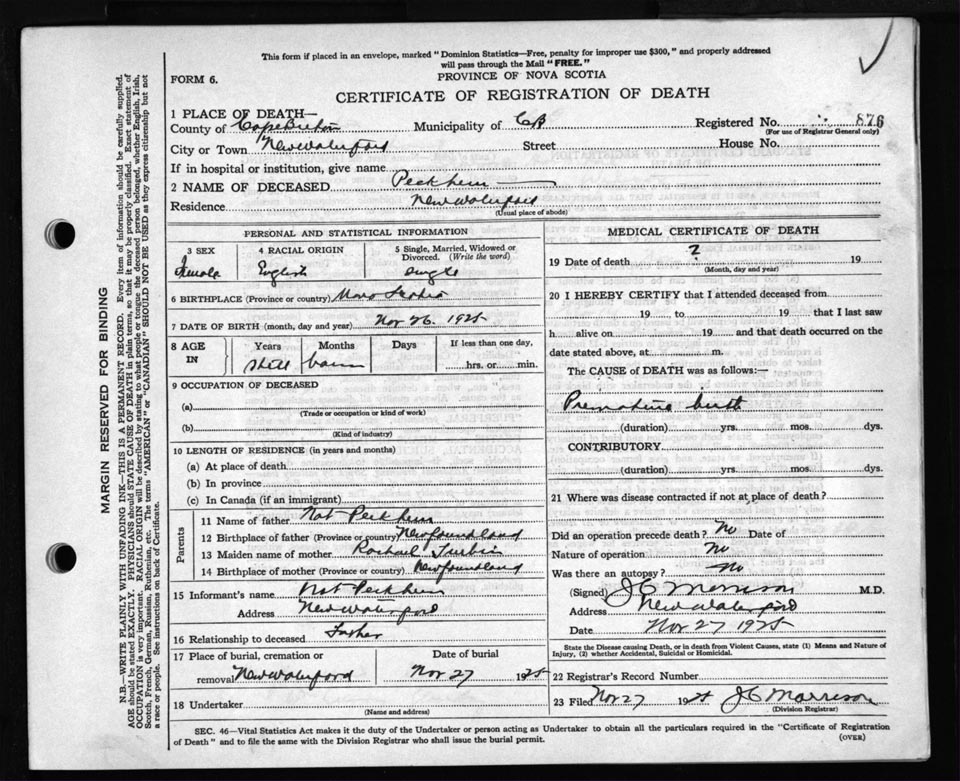 This form if placed in an envelope, marked "Dominion Statistics—Free, penalty for improper use $300," and properly addressed
will pass through the Mail "FREE."
FORM 6.
PROVINCE OF NOVA SCOTIA
CERTIFICATE OF REGISTRATION OF DEATH
1 PLACE OF DEATH—
County of Cape Breton Municipality of CB Registered No. 876
(For use of Registrar General only)
City or Town New Waterford Street House No.
If in hospital or institution, give name
2 NAME OF DECEASED Peckhem
Residence New Waterford
(Usual place of abode)
PERSONAL AND STATISTICAL INFORMATION
3 SEX 4 RACIAL ORIGIN 5 Single, Married, Widowed or Divorced. (Write the word)
Female English Single
6 BIRTHPLACE (Province or country) Nova Scotia
7 DATE OF BIRTH (month, day and year) Nov 26 1925
8 AGE IN Years Months Days If less than one day,
Still born hrs. or min.
9 OCCUPATION OF DECEASED
(a)
(Trade or occupation or kind of work)
(b)
(Kind of industry)
10 LENGTH OF RESIDENCE (in years and months)
(a) At place of death
(b) In province
(c) In Canada (if an immigrant)
Parents
11 Name of father Nat Peckhem
12 Birthplace of father (Province or country) Newfoundland
13 Maiden name of mother Rachael
14 Birthplace of mother (Province or country) Newfoundland
15 Informant's name Nat Peckhem
Address New Waterford
16 Relationship to deceased Father
17 Place of burial, cremation or removal New Waterford Date of burial Nov 27 1925
18 Undertaker
(Name and address)
MEDICAL CERTIFICATE OF DEATH
19 Date of death ? 19
(Month, day and year)
20 I HEREBY CERTIFY that I attended deceased from
19 to 19 that I last saw
h alive on 19 and that death occurred on the
date stated above, at m.
The CAUSE of DEATH was as follows:—
Premature birth
(duration) yrs. mos. dys.
CONTRIBUTORY
(duration) yrs. mos. dys.
21 Where was disease contracted if not at place of death?
Did an operation precede death? No Date of
Nature of operation No
Was there an autopsy? No
(Signed) J C Morrison M.D.
Address New Waterford
Date Nov 27 1925
State the Disease causing Death, or in death from Violent Causes, state (1) Means and Nature of
Injury, (2) whether Accidental, Suicidal or Homicidal.
22 Registrar's Record Number
23 Filed Nov 27 1925 J C Morrison
(Division Registrar)
SEC. 46—Vital Statistics Act makes it the duty of the Undertaker or person acting as Undertaker to obtain all the particulars required in the "Certificate of Registration
of Death" and to file the same with the Division Registrar who shall issue the burial permit. (OVER)
MARGIN RESERVED FOR BINDING
N.B.—WRITE PLAINLY WITH UNFADING INK—THIS IS A PERMANENT RECORD. Every item of information should be carefully supplied.
AGE should be stated EXACTLY. PHYSICIANS should STATE CAUSE OF DEATH in plain terms, so that it may be properly classified. Exact statement of
OCCUPATION is very important. RACIAL ORIGIN will be described by stating to what people or tongue the deceased person belonged, whether English, Irish,
Scotch, French, German, Russian, Ruthenian, etc. The terms "AMERICAN" or "CANADIAN" SHOULD NOT BE USED as they express citizenship but not
a race or people. See instructions on back of Certificate.